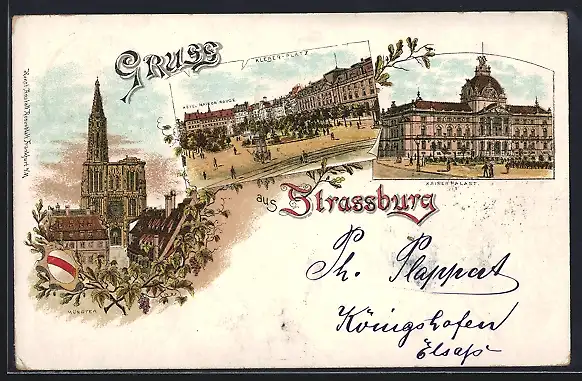 GRUSS
KLEBER-PLATZ
HOTEL MAISON ROUGE
KAISERPALAST.
aus Strassburg
MÜNSTER
Ph. Plappert
Königshofen
Elsaß